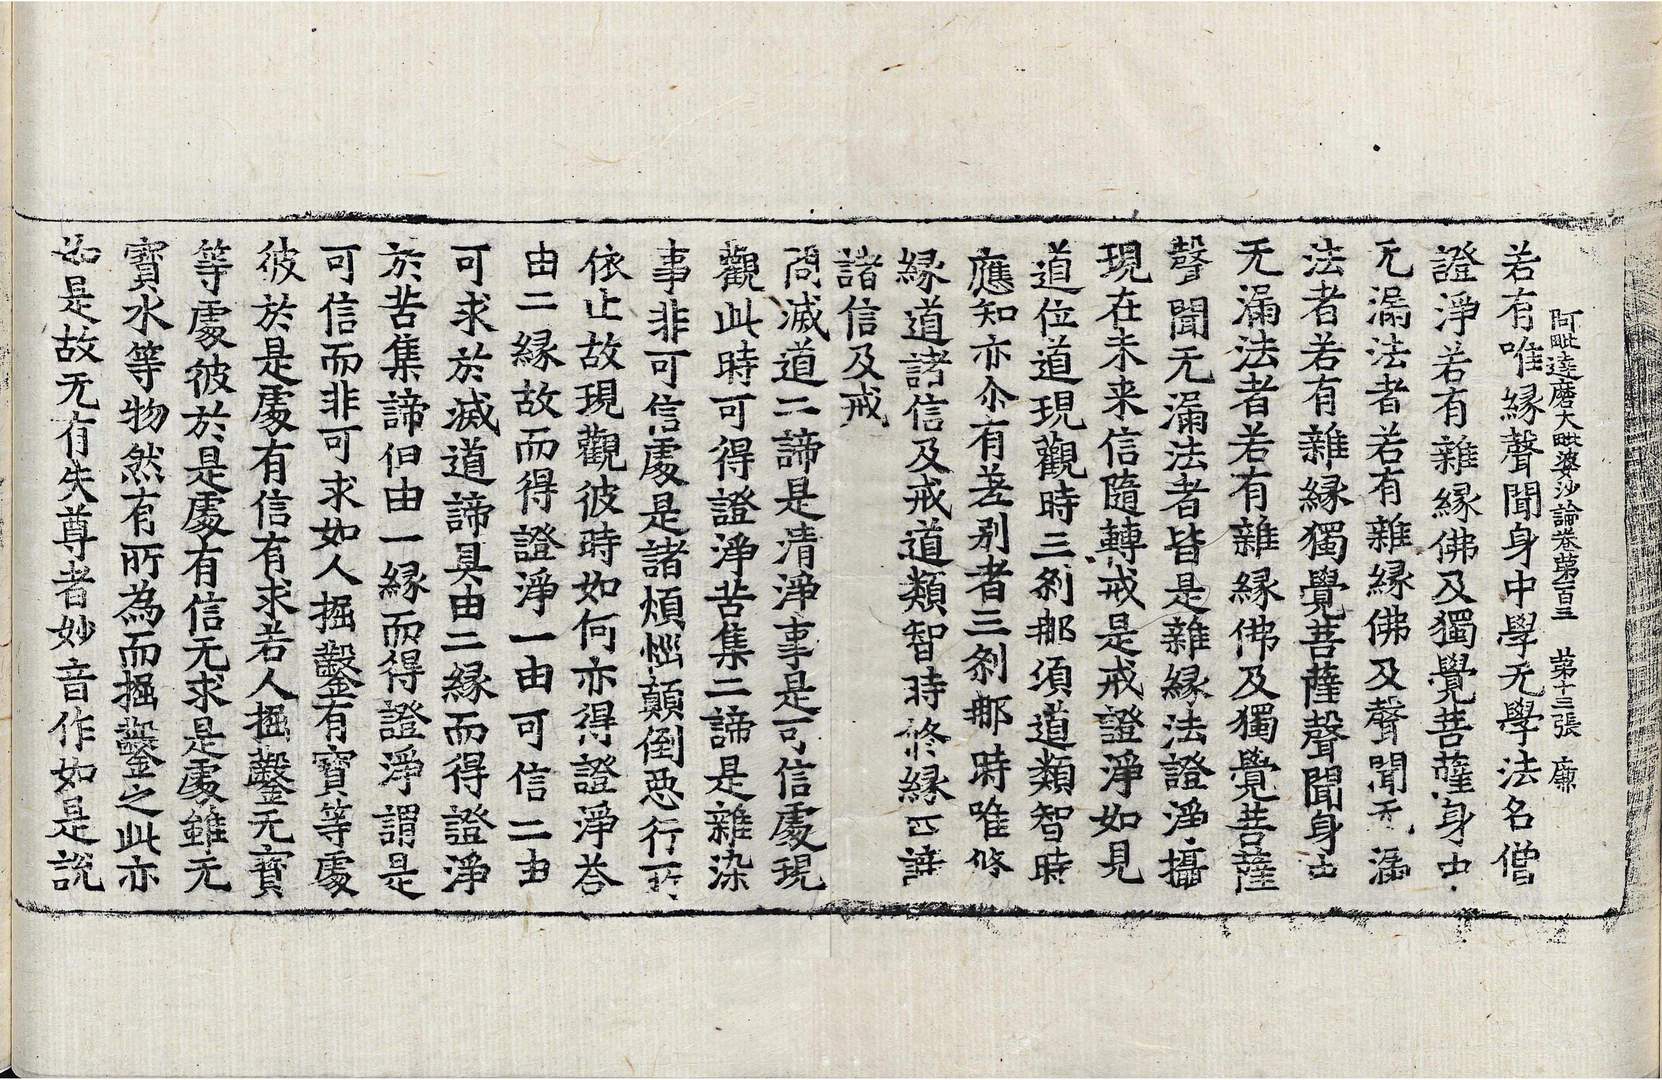 阿毗達磨大毗婆沙論卷第一百三　第十三張　廉
若有唯緣聲聞身中學无學法名僧
證淨若有雜緣佛及獨覺菩薩身中
无漏法者若有雜緣佛及聲聞无漏
法者若有雜緣獨覺菩薩聲聞身中
无漏法者若有雜緣佛及獨覺菩薩
聲聞无漏法者皆是雜緣法證淨攝
現在未来信隨轉戒是戒證淨如見
道位道現觀時三剎那須道類智時
應知亦尒有差別者三剎那時唯修
緣道諸信及戒道類智時修緣四諦
諸信及戒
問滅道二諦是清淨事是可信處現
觀此時可得證淨苦集二諦是雜染
事非可信處是諸煩惱顛倒惡行所
依止故現觀彼時如何亦得證淨荅
由二緣故而得證淨一由可信二由
可求於滅道諦具由二緣而得證淨
於苦集諦但由一緣而得證淨謂是
可信而非可求如人掘鑿有寶等處
彼於是處有信有求若人掘鑿无寶
等處彼於是處有信无求是處雖无
寶水等物然有所為而掘鑿之此亦
如是故无有失尊者妙音作如是說